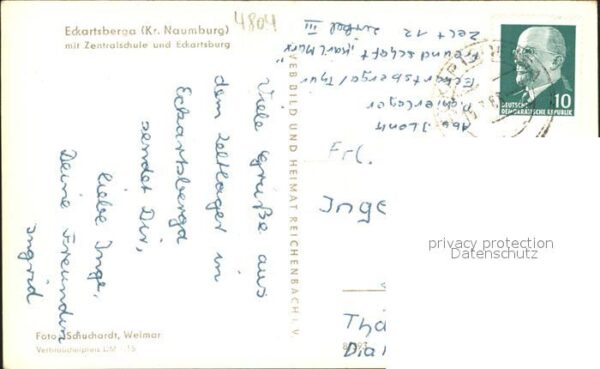 Eckartsberga (Kr. Naumburg)
mit Zentralschule und Eckartsburg
4804
Viele Grüße aus
dem Zeltlager in
Eckartsberga
sendet Dir,
liebe Inge,
Deine Freundin
Ingrid
VEB BILD UND HEIMAT REICHENBACH i. V.
Zelt 12 Zirkel III
Freundschaft "Karl Marx"
Eckartsberga/Thür
Pionierlager
Abs.
10
DEUTSCHE
DEMOKRATISCHE REPUBLIK
Frl.
Inge
privacy protection
Datenschutz
Foto: Schuchardt, Weimar
Verbraucherpreis DM -,15